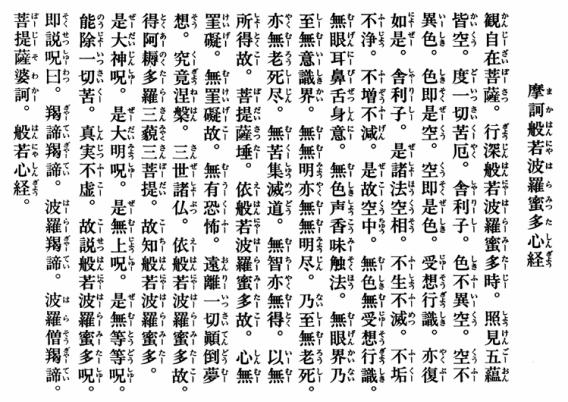 摩訶般若波羅蜜多心経
観自在菩薩。行深般若波羅蜜多時。照見五蘊
皆空。度一切苦厄。舎利子。色不異空。空不
異色。色即是空。空即是色。受想行識。亦復
如是。舎利子。是諸法空相。不生不滅。不垢
不浄。不増不減。是故空中。無色無受想行識。
無眼耳鼻舌身意。無色声香味触法。無眼界乃
至無意識界。無無明亦無無明尽。乃至無老死。
亦無老死尽。無苦集滅道。無智亦無得。以無
所得故。菩提薩埵。依般若波羅蜜多故。心無
罣礙。無罣礙故。無有恐怖。遠離一切顛倒夢
想。究竟涅槃。三世諸仏。依般若波羅蜜多故。
得阿耨多羅三藐三菩提。故知般若波羅蜜多。
是大神呪。是大明呪。是無上呪。是無等等呪。
能除一切苦。真実不虚。故説般若波羅蜜多呪。
即説呪曰。羯諦羯諦。波羅羯諦。波羅僧羯諦。
菩提薩婆訶。般若心経。